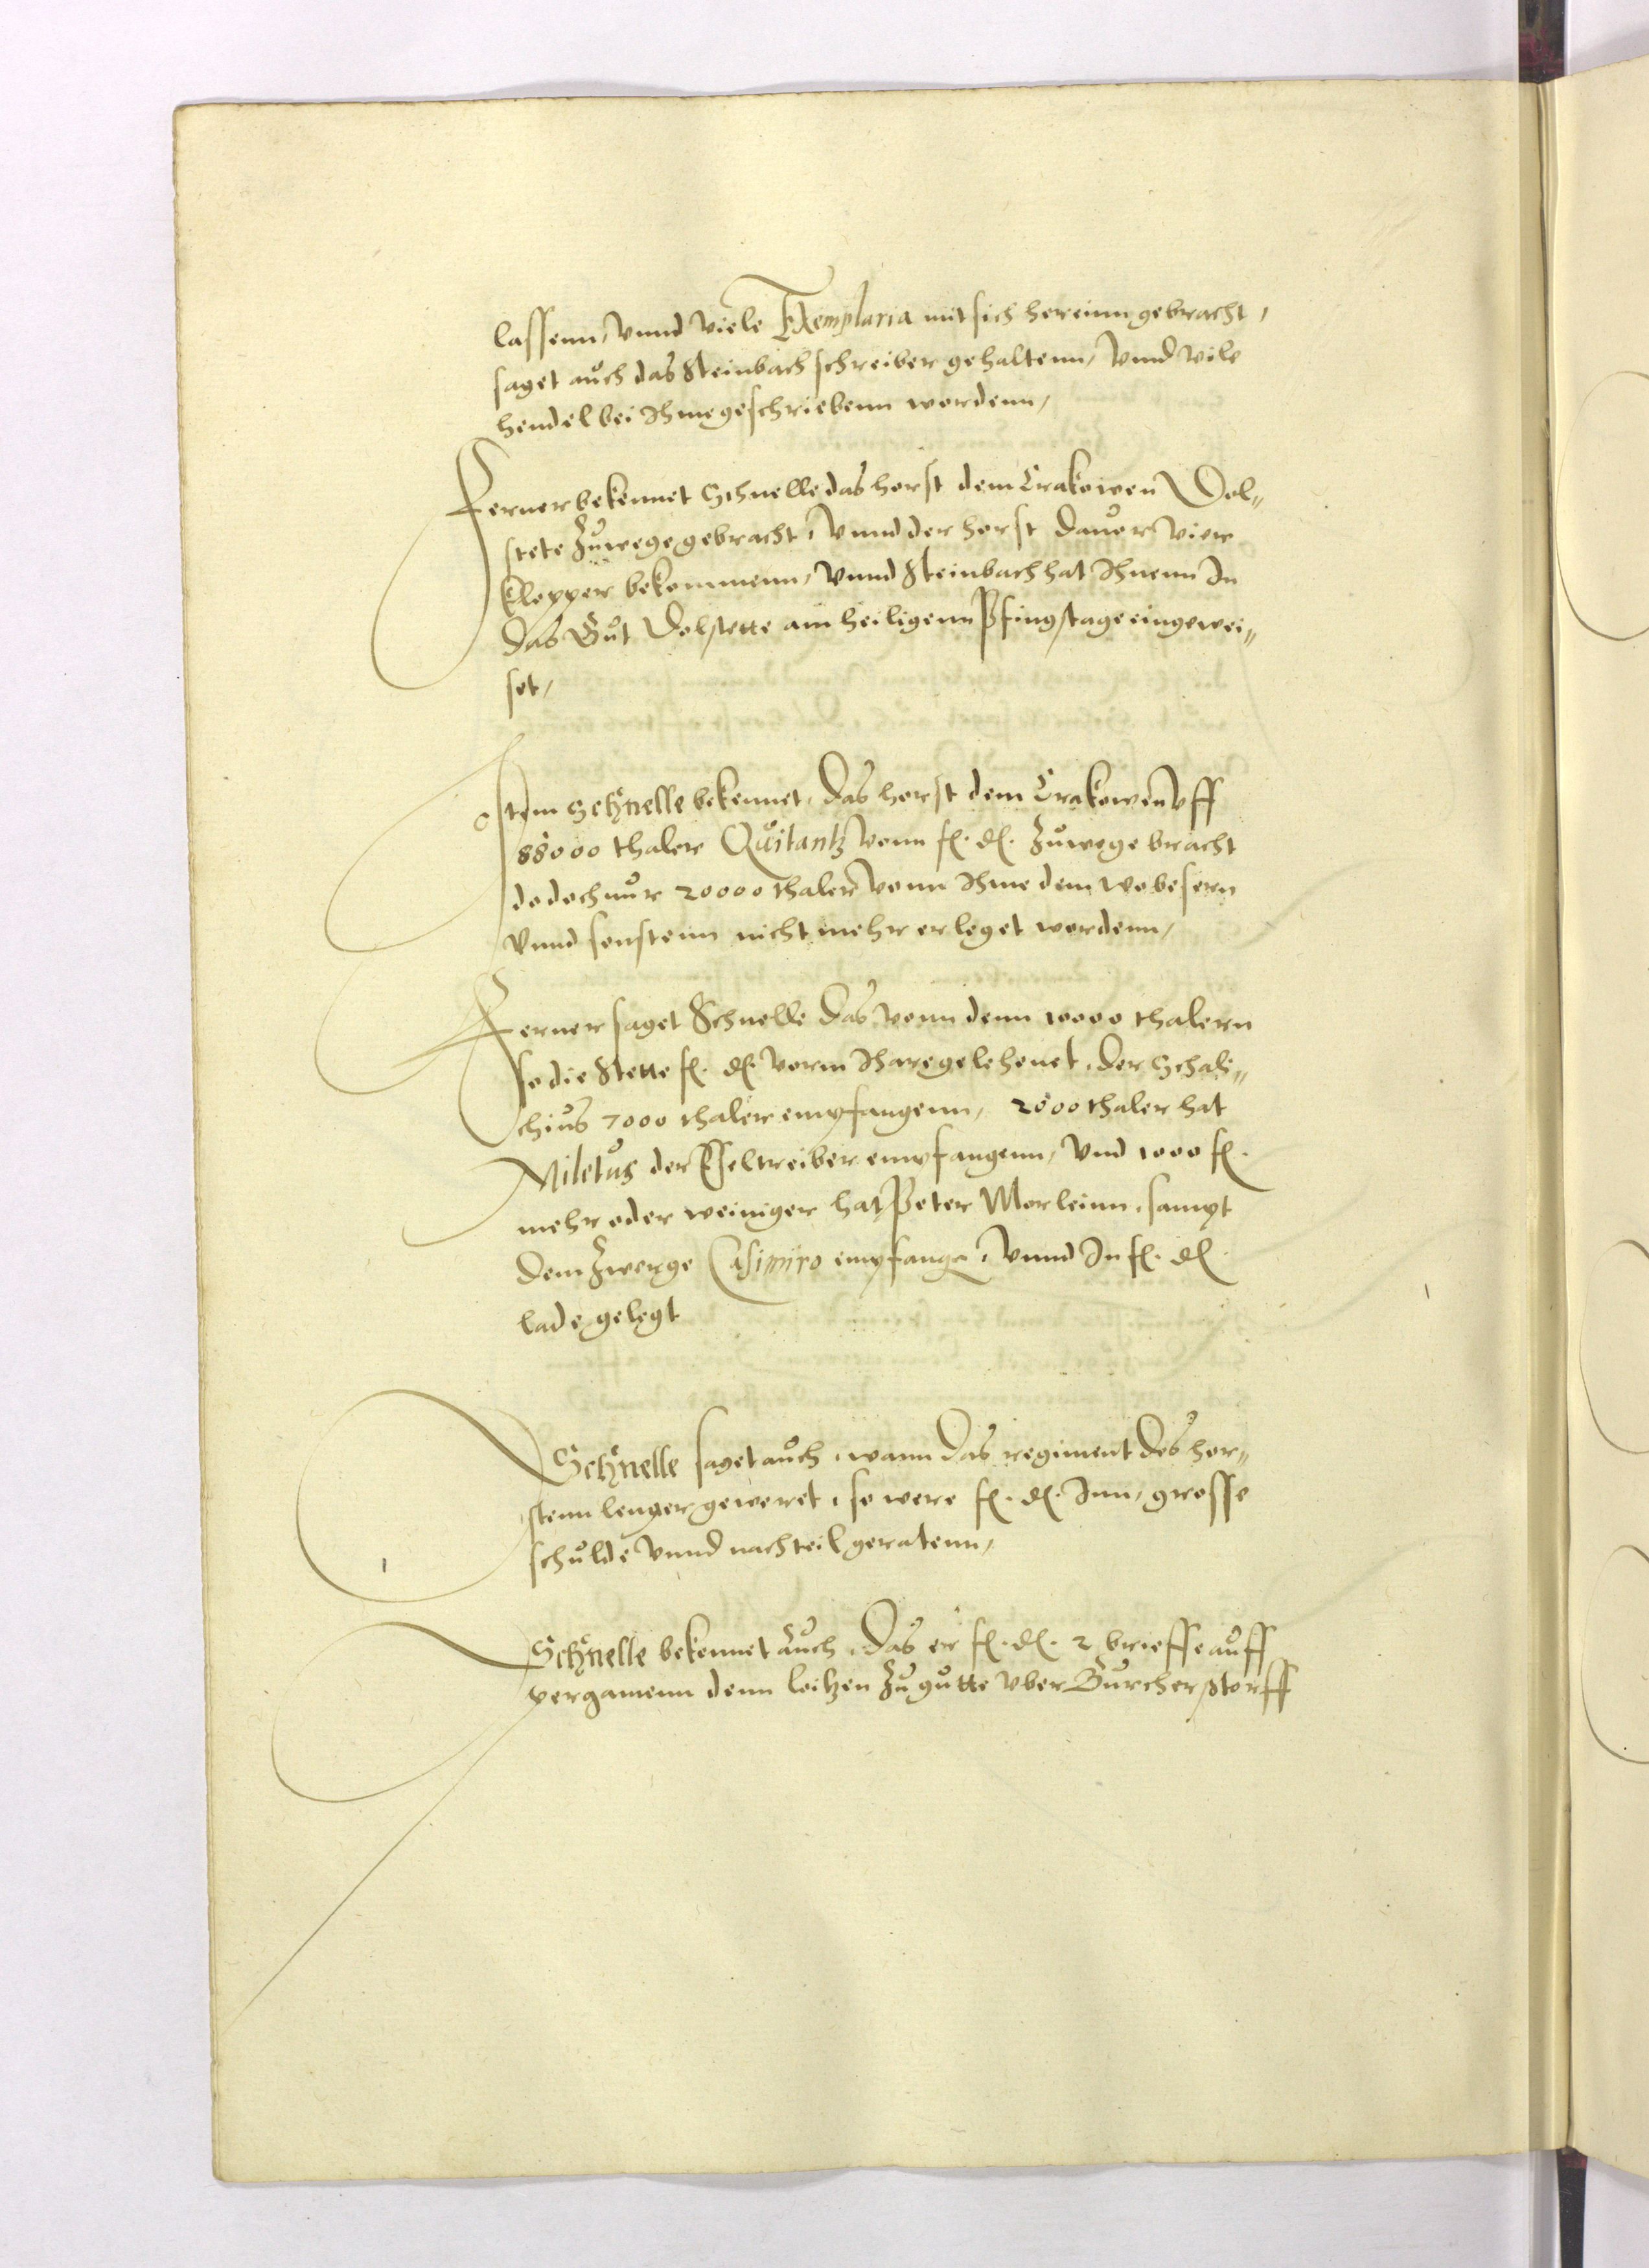 lassenn, vnnd viele Exemplaria mit sich hereinn gebracht,
saget auch das Steinbach schreiber gehaltenn, vnnd vile
hendel bei Ihme geschriebenn wordenn,
Ferner bekennet Schnelle das horst dem Crakowen Dol„
stete zuwege gebracht, vnnd der horst dauor vier
klepper bekommenn, vnnd Steinbach hat Ihnenn In
das Gut Dolstette am heiligenn Pfingstage eingewei„
set,
Item Schnelle bekennet, das horst dem Crakowen vff
88000 thaler Quitantz vonn f. d. zuwege bracht
do doch nur 20000 thaler vonn Ihme dem Wobesern
vnnd sonstenn nicht mehr erleget wordenn,
Ferner saget Schnelle das vonn denn 10000 thalern
so die Stette f. d. vorm Ihare gelehenet, der Schali„
chius 7000 thaler empfangenn, 2000 thaler hat
Miletus der Eseltreiber empfangenn, vnd 1000 f.
mehr oder weiniger hat Peter Morleinn, sampt
dem Zwerge Casimiro empfangen, vnnd In f. d.
lade gelegt
Schnelle saget auch, wann das regiment des hor„
stenn lenger geweret, so were f. d. Inn, grosse
schulde vnnd nachteil geratenn,
Schnelle bekennet auch, das er f. d. 2 brieffe auff
pergamenn denn leitzen zu gutte vber Burcherstorff